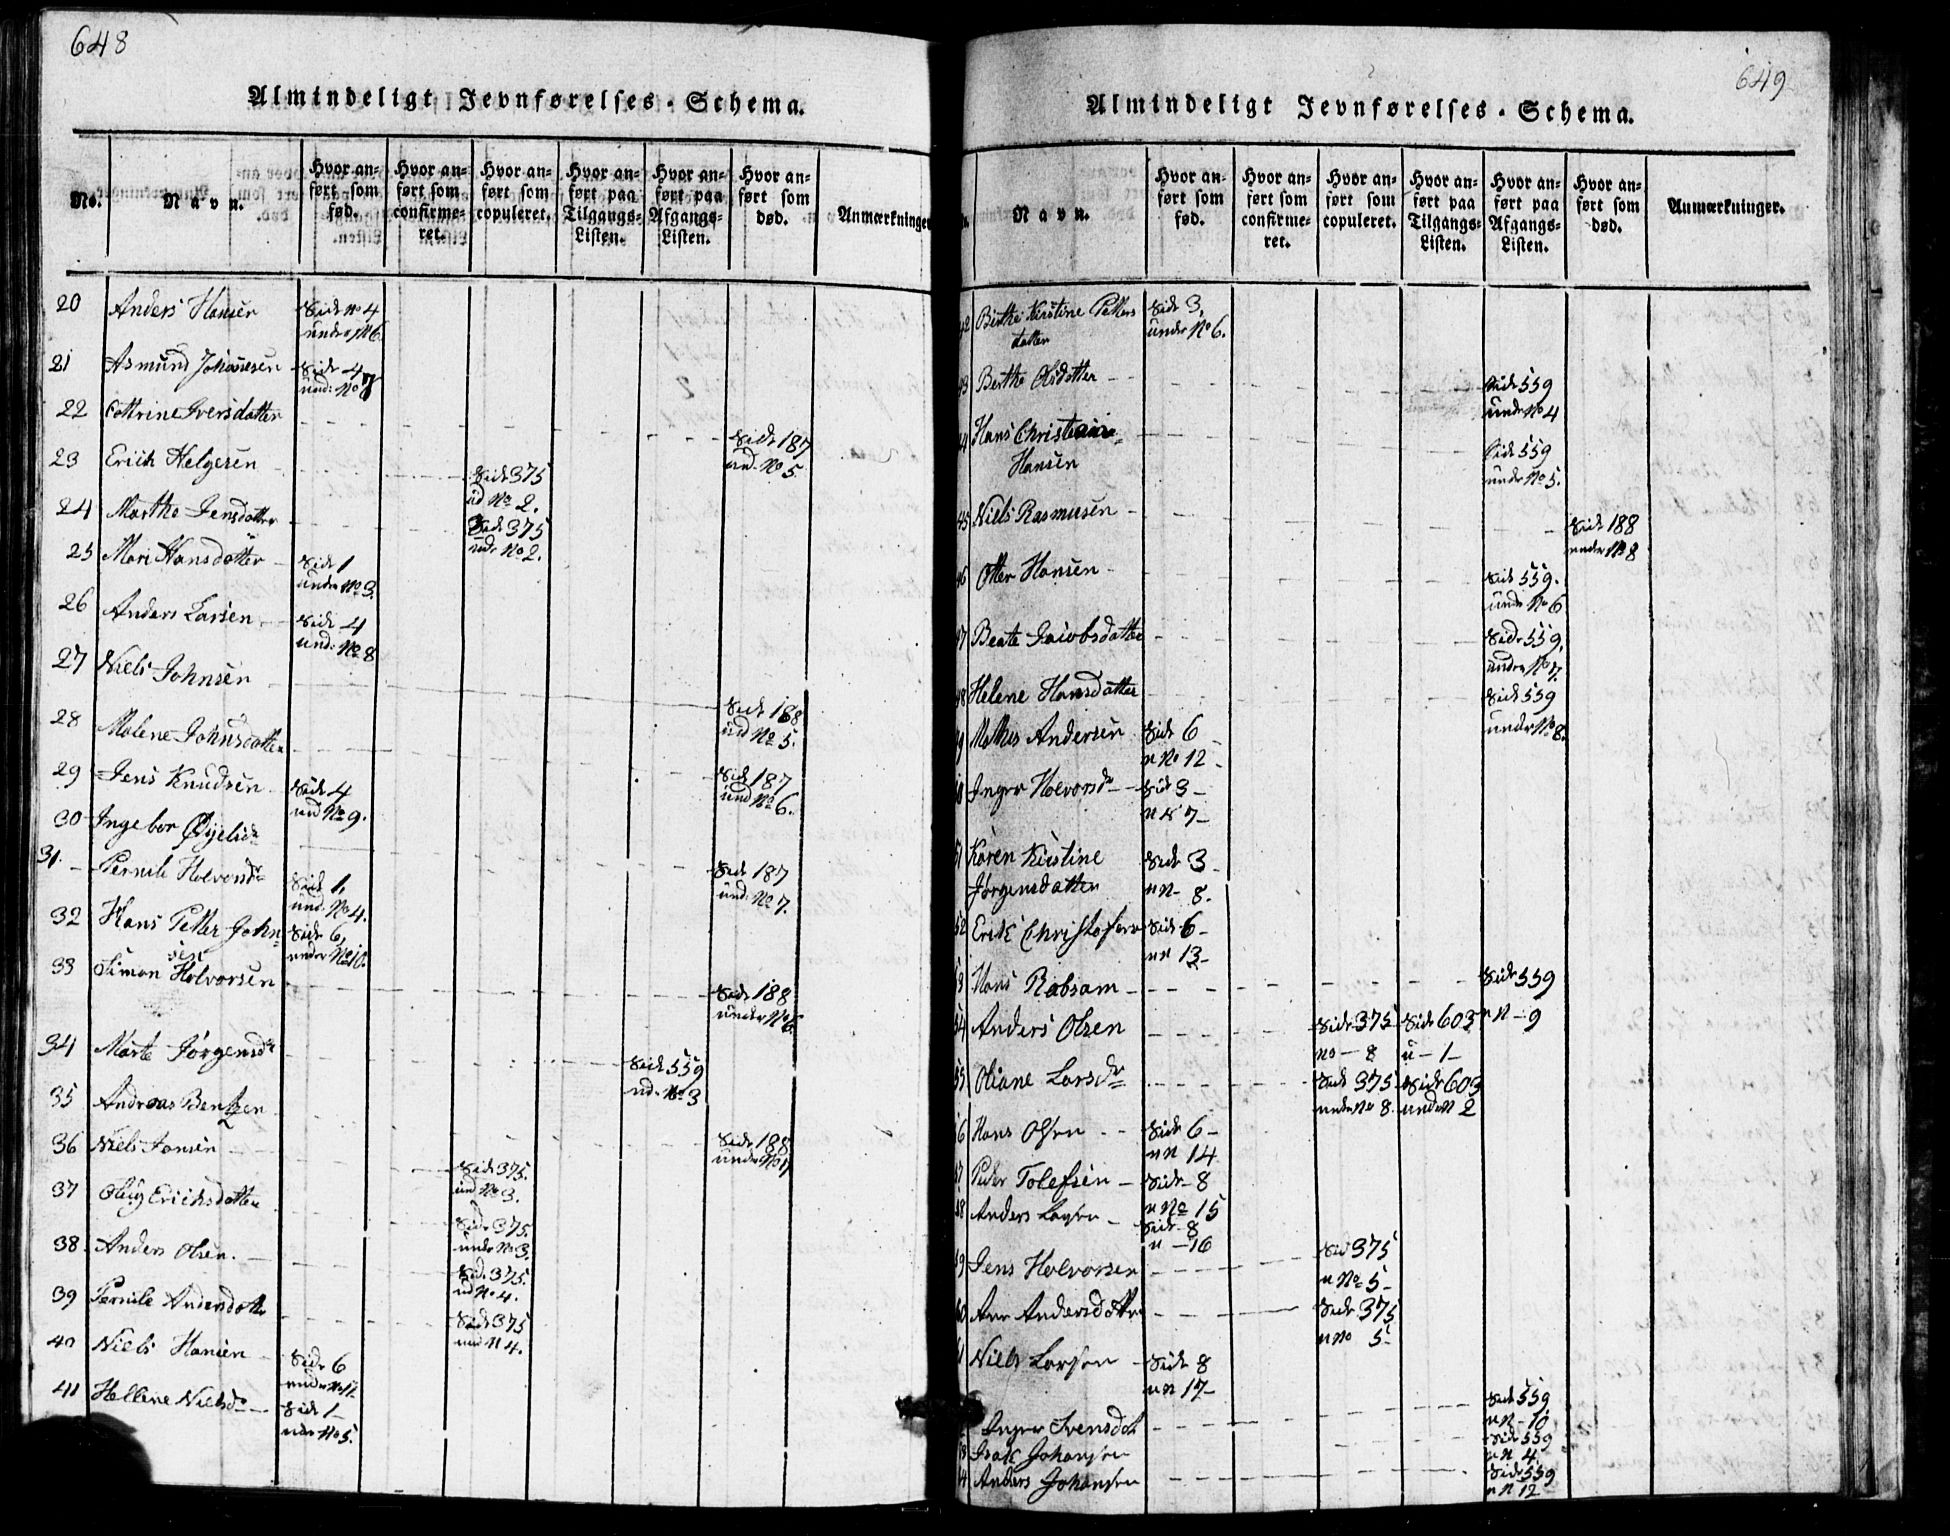 648
Almindeligt Jevnførelses-Schema.
No.
Navn.
Hvor an-
ført som
fød.
Hvor an-
ført som
confirme-
ret.
Hvor an-
ført som
copuleret.
Hvor an-
ført paa
Tilgangs-
Listen.
Hvor an-
ført paa
Afgangs-
Listen.
Hvor an-
ført som
død.
Anmærkninger
20 Anders Hansen Side No 4
under No 6.
21 Asmund Johannesen Side 4
und: No 7
22 Cattrine Iversdatter Side 187
und. No 5.
23 Erich Helgesen Side 375
ud No 2.
24 Marthe Jensdatter Side 375
und. No 2.
25 Mari Hansdatter Side 1
under No 3.
26 Anders Larsen Side 4
und: No 8
27 Niels Johnsen Side 188
und No 5.
28 Malene Johnsdatter Side 187
und No 6.
29 Jens Knudsen Side 4
und No 9.
30 Ingebor Side 187
und: No 7.
31. Pernile Holvorsd Side 1,
und: No 4.
32 Hans Petter John-
sen Side 6,
under No 10.
33 Simon Holvorsen Side 188
under No 6.
34 Marte Jørgensdr Side 559
ud. No 3
35 Andreas Bentzen Side 188
under No 7
36 Niels Jansen Side 375.
und No 3.
37 Erichsdatter Side 375.
under No 3.
38 Anders Olsen. Side 375.
ud No 4.
39 Pernile Andersdatter Side 375
und N 4.
40 Niels Hansen Side 6
under No 11
41 Hellene Nielsd Side 1
under No 5.
649
Almindeligt Jevnførelses-Schema.
Navn.
Hvor an-
ført som
fød.
Hvor an-
ført som
confirme-
ret.
Hvor an-
ført som
copuleret.
Hvor an-
ført paa
Tilgangs-
Listen.
Hvor an-
ført paa
Afgangs-
Listen.
Hvor an-
ført som
død.
Anmærkninger.
42 Birthe Kirstine Petters
datter Side 3,
under No 6.
43 Berthe Olsdatter Side 559
under No 4
44 Hans Christian
Hansen Side 559
under No 5.
45 Niels Rasmusen Side 188
under No 8
46 Otter Hansen Side 559.
under No 6
47 Beate Jacobsdatter Side 559,
under No 7.
48 Helene Hansdatter Side 559
under No 8.
49 Mathis Andersen Side 6
u No 12
Inger Holvorsd Side 3
u N 7
51 Karen Kirstine
Jørgensdatter Side 3
u N 8.
52 Erik Christofers Side 6
u n 13
53 Hans Rabsam Side 559
u N 9
54 Anders Olsen Side 375 Side 603
no 8 u 1
55 Oliane Larsdr Side 375 Side 603
under No 8. under N 2
56 Hans Olsen Side 6
u n 14
57 Peder Tolefsen Side 8
u No 15
58 Anders Side 8
u 16
59 Jens Holvorsen Side 375
u No 5
60 Ane Andersdatter Side 375
u No 5
61 Niels Larsen Side 8
u n 17
Inger Svensdat Side 559
u N 10
Isak Johansen Side 559
u N
Anders Johansen Side 559
u N 12